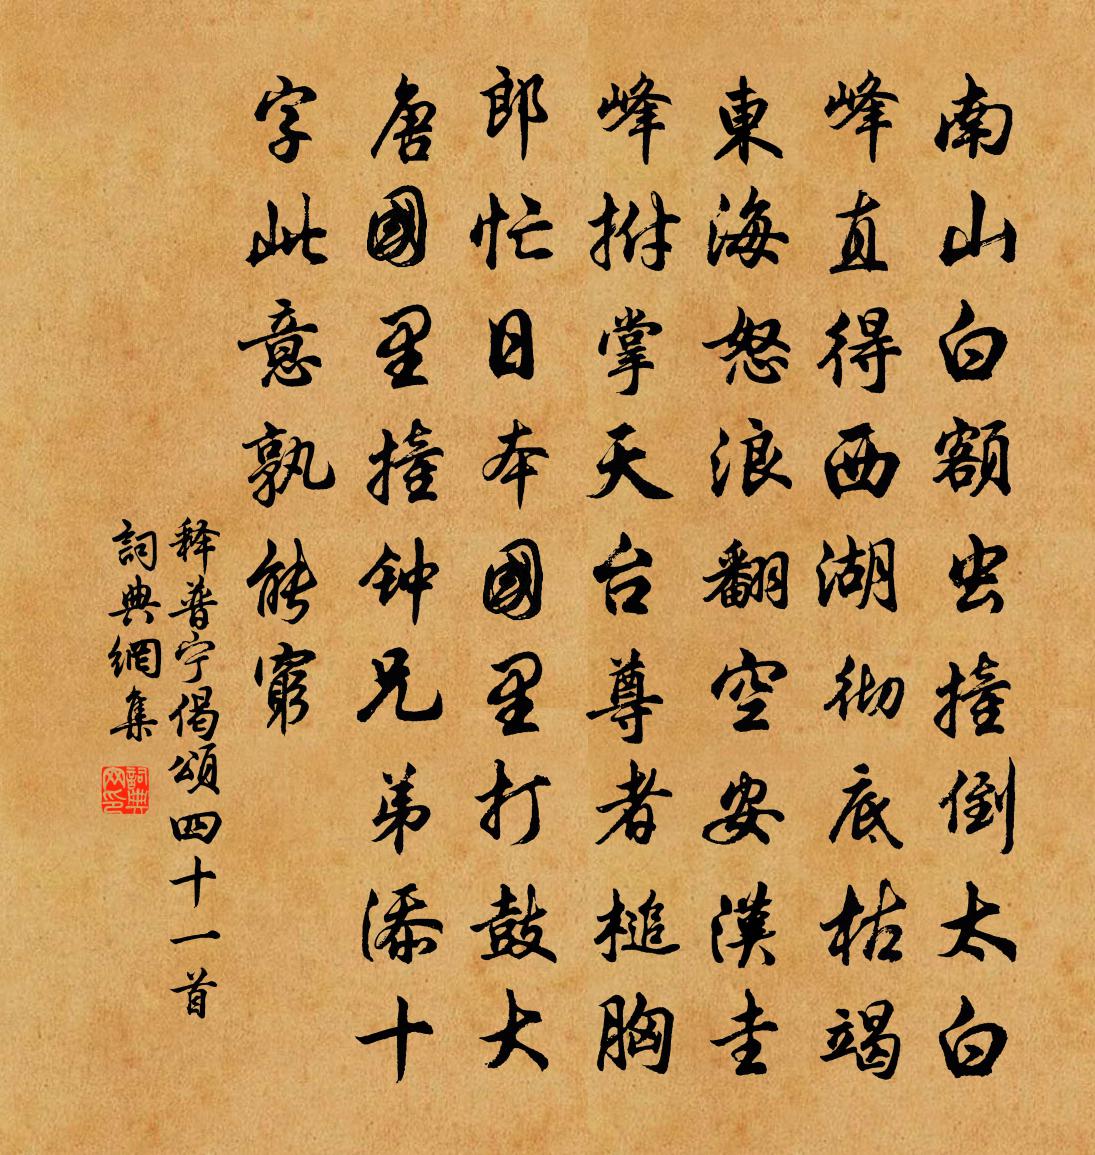 南山白額虫撞倒太白
峰直得西湖彻底枯竭
東海怒浪翻空安漢圭
峰拊掌天台尊者槌胸
郎忙日本國里打鼓大
唐國里撞钟兄弟添十
字此意孰能窮
释普宁偈頌四十一首
詞典網集
詞典网印